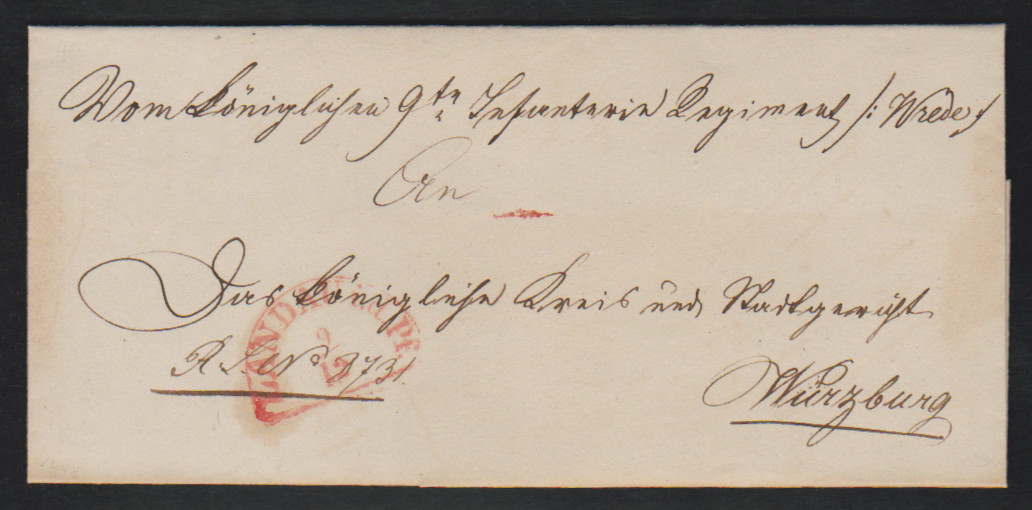 Vom Königlichen 9ten Infanterie Regiment /: Wrede :/
An
Das Königliche Kreis und Stadtgericht
R. S. No 873.
Würzburg
LAND